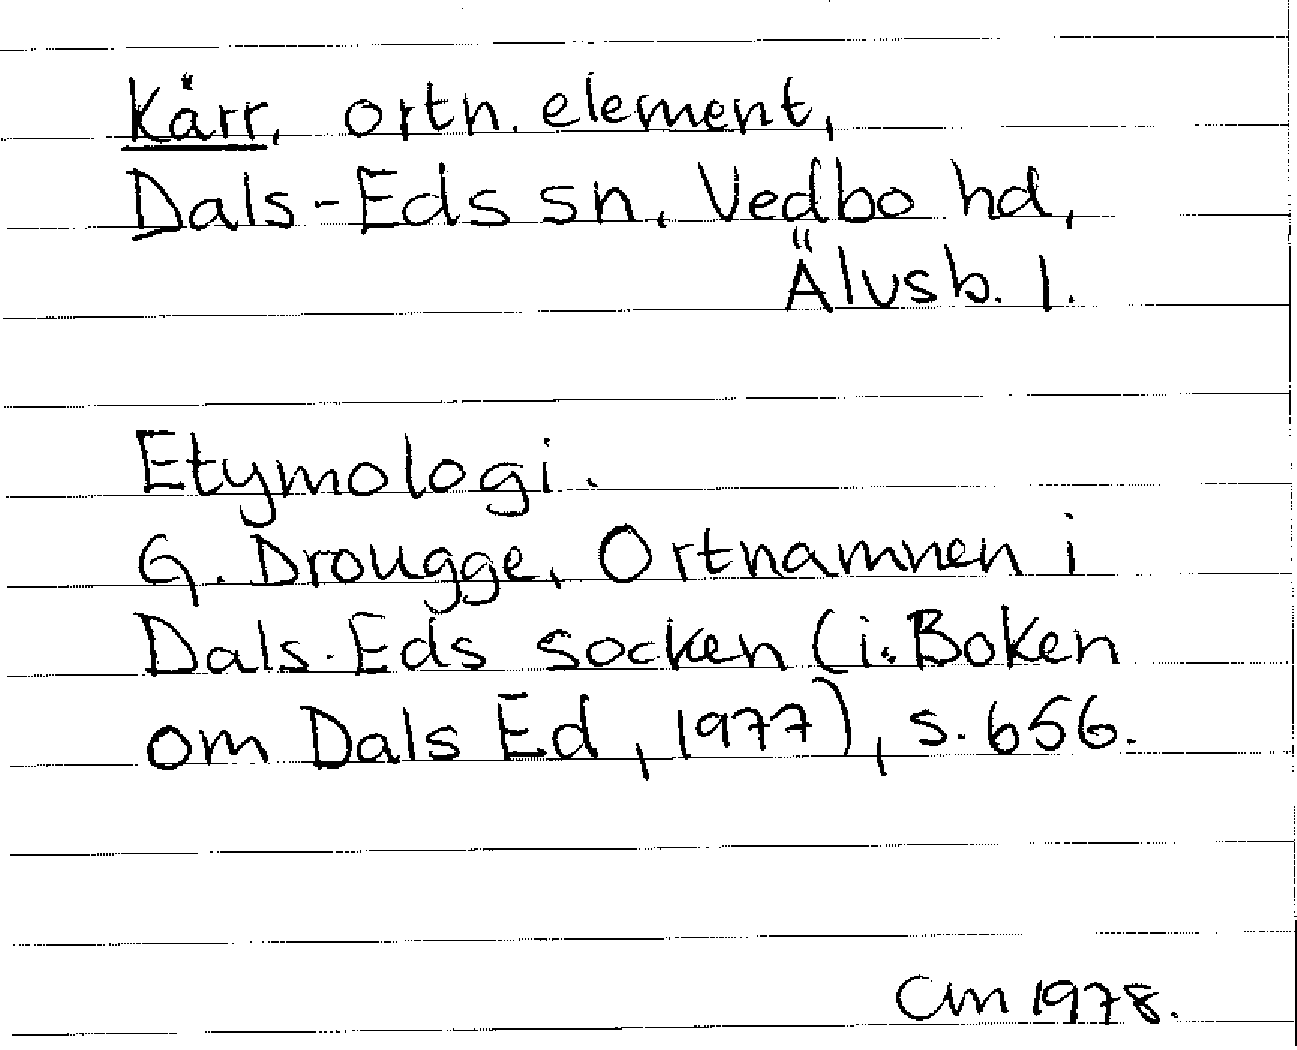 Kärr, ortn. element,
Dals-Eds sn, Vedbo hd,
Älvsb. l.
Etymologi.
G. Drougge, Ortnamnen i
Dals-Eds socken (i: Boken
om Dals Ed, 1977), s. 656.
CM 1978.